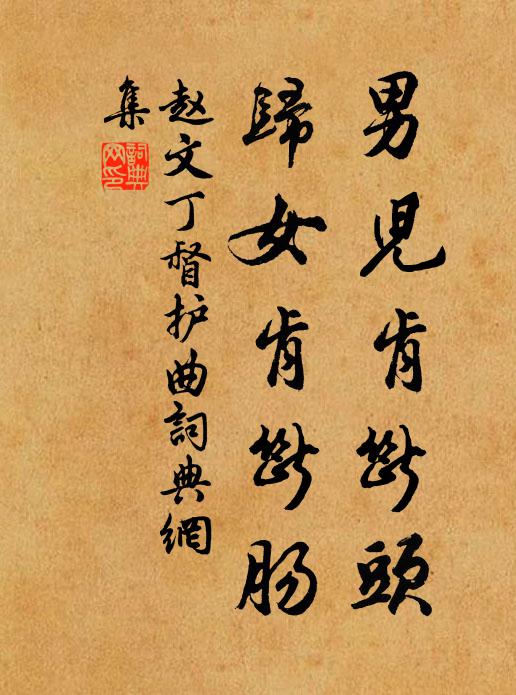 男兒肯斷頭
歸女肯斷腸
赵文丁督护曲詞典網
集
詞典
网印